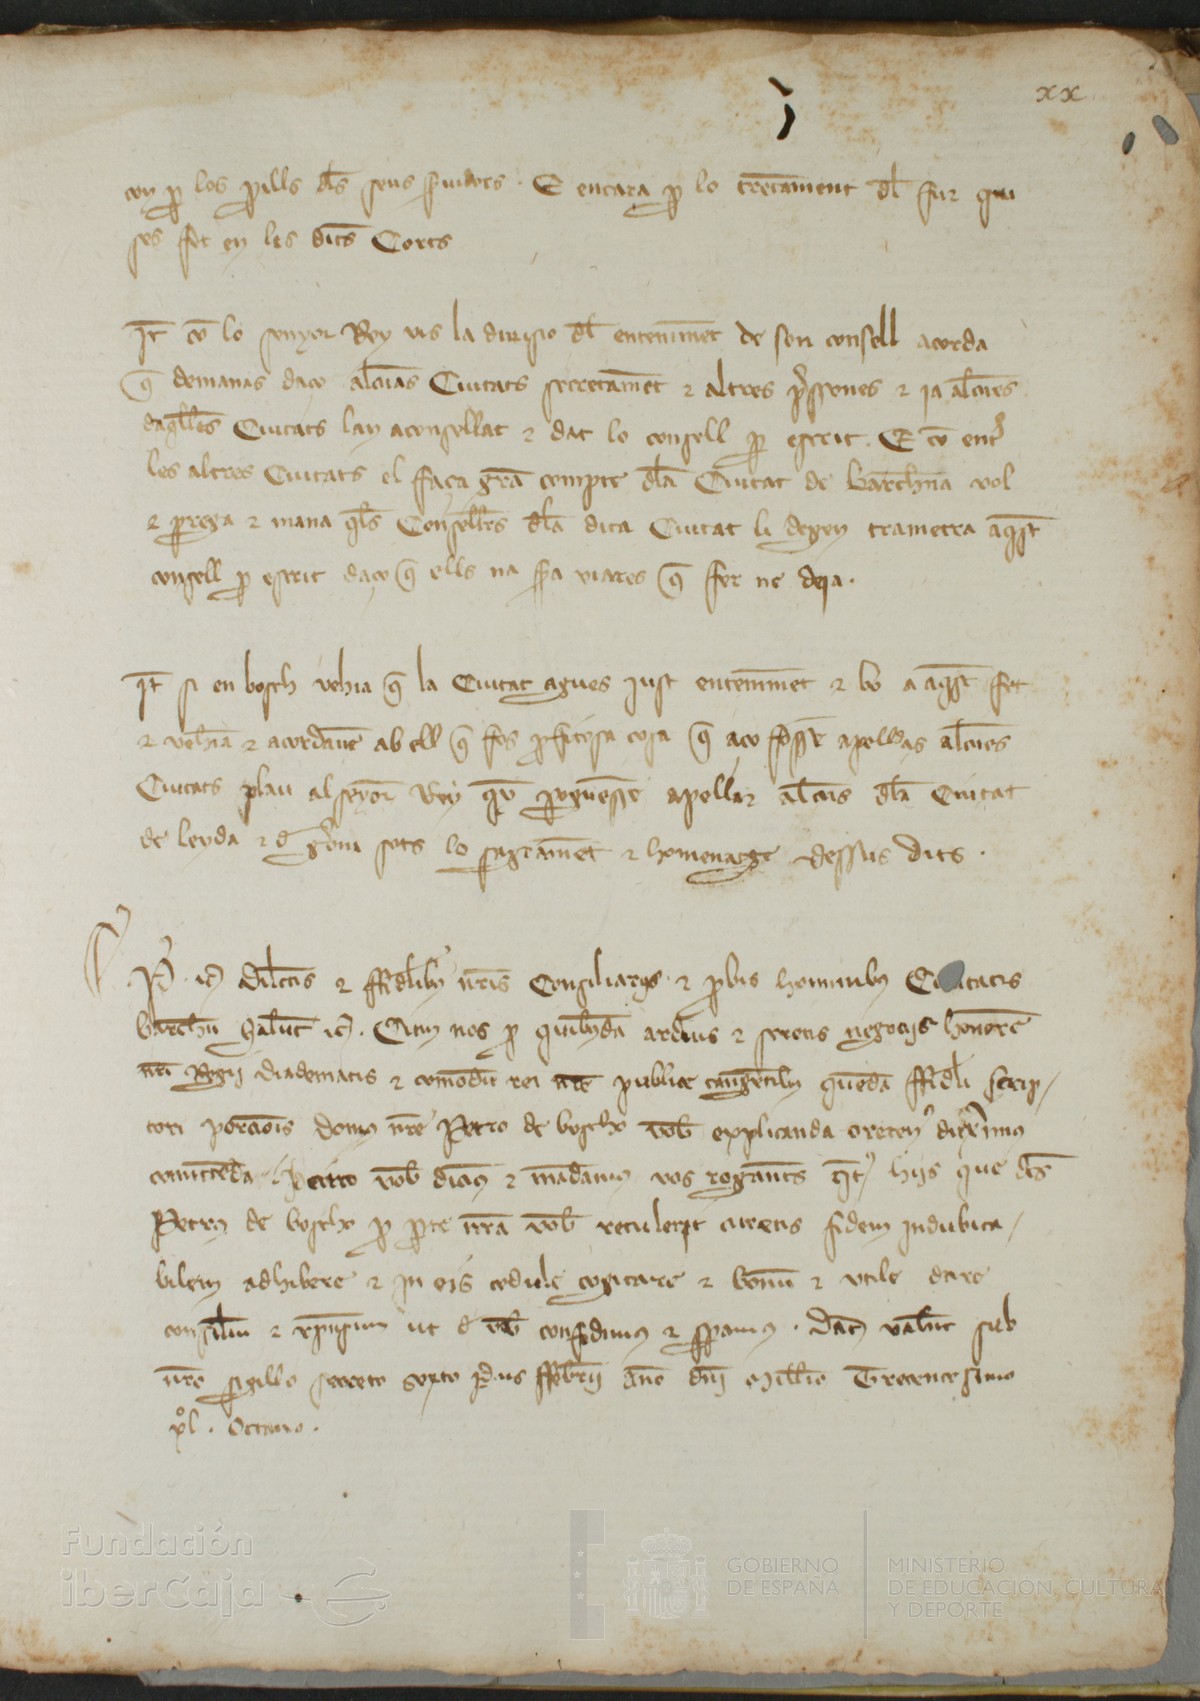 xx
con p los perills dls seus seruidors · E encara p lo trencament dl fur qui
ses fet en les dits Corts
It co lo senyor Rey vis la diuisio dl enteniment de son consell acorda
q demanas daco alcunas Ciutats secretament ⁊ altres pssones ⁊ ja alcunes
daqlles Ciutats lan aconsellat ⁊ dat lo consell p escrit. E co entr
les altres Ciutats el faça gran compte dla Ciutat de barchna vol
⁊ prega ⁊ mana qls Consellers dla dita Ciutat li degen trametra aqst
consell p escrit daço q ells na sera viares q fer ne deja.
It si en bosch vehia q la Ciutat agues just enteniment ⁊ bo a aqst fet
⁊ vehian ⁊ acordauen ab ell q fos profitosa cosa q aco fossen apellats alcunes
Ciutats plau al senyor Rey q poguessen apellar alcuns dla Ciutat
de leyda ⁊ d gerona sots lo sagrament ⁊ homenatge dessus dits ·
P. ic dilectis ⁊ ffidelibus nris Consiliarijs ⁊ probis hominibus Ciuitatis
barchn Salute ic. Cum nos p quibusda arduis ⁊ secretis negocijs honore
nri Regij diadematis ⁊ comodu rei publice tangentibus queda ffideli scrip
tori porcionis domus nre Petro de boscho vob explicanda oreten duxerimus
comittenda vob dicimus ⁊ mandamus vos rogantes qt hijs que dcs
Petrus de boscho p parte nra vob retulerit fidem indubita
bilem adhibere ⁊ in eis cogitare ⁊ bonu ⁊ utile dare
consiliu ⁊ ut d vob confidimus ⁊ speramus · Dat valent sub
nro sigillo secreto sexto idus ffebrij Ano dni Millio Trecentesimo
xl. Octauo.
Fundación
iberCaja
GOBIERNO
DE ESPAÑA
MINISTERIO
DE EDUCACIÓN, CULTURA
Y DEPORTE